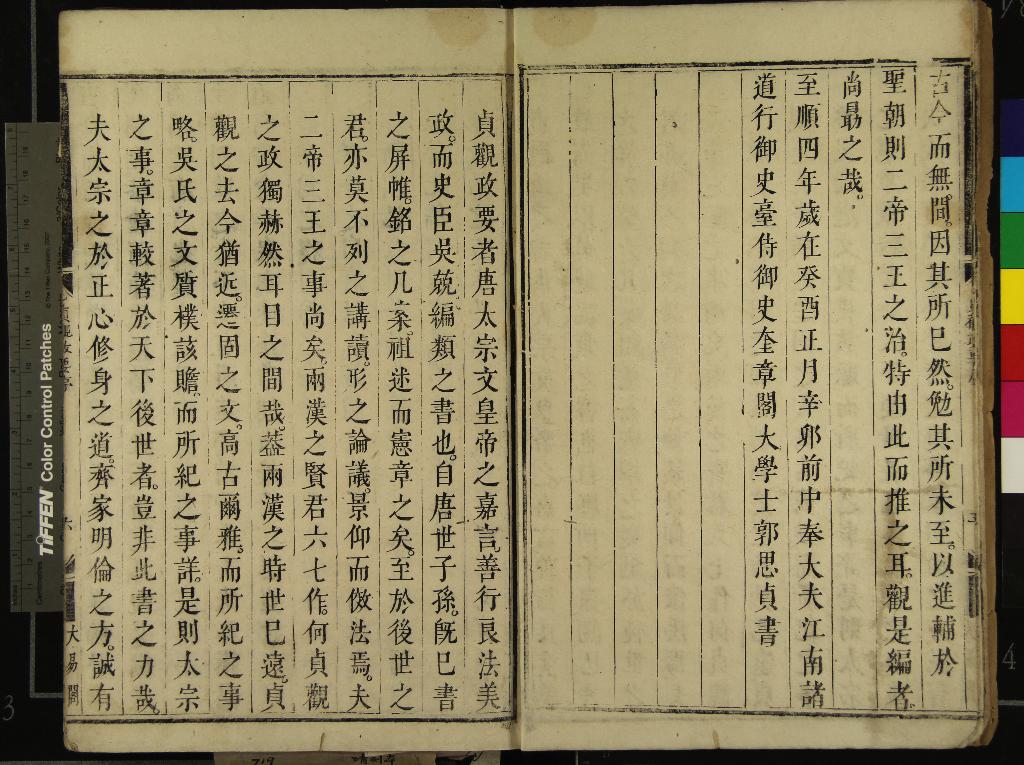 古今而無間。因其所已然。勉其所未至。以進輔於
聖朝則二帝三王之治。特由此而推之耳。觀是編者。
尚勗之哉。
至順四年歲在癸酉正月辛卯前中奉大夫江南諸
道行御史臺侍御史奎章閣大學士郭思貞書
貞觀政要者唐太宗文皇帝之嘉言善行良法美
政。而史臣吳兢編類之書也。自唐世子孫。旣已書
之屏帷。銘之几案。祖述而憲章之矣。至於後世之
君。亦莫不列之講讀。形之論議。景仰而倣法焉。夫
二帝三王之事尚矣。兩漢之賢君六七作。何貞觀
之政獨赫然耳目之間哉。葢兩漢之時世已遠。貞
觀之去今猶近。遷固之文。高古爾雅。而所紀之事
略。吳氏之文質樸該贍。而所紀之事詳。是則太宗
之事。章章較著於天下後世者。豈非此書之力哉。
夫太宗之於正心修身之道。齊家明倫之方。誠有
六
大易閣
TIFFEN Color Control Patches